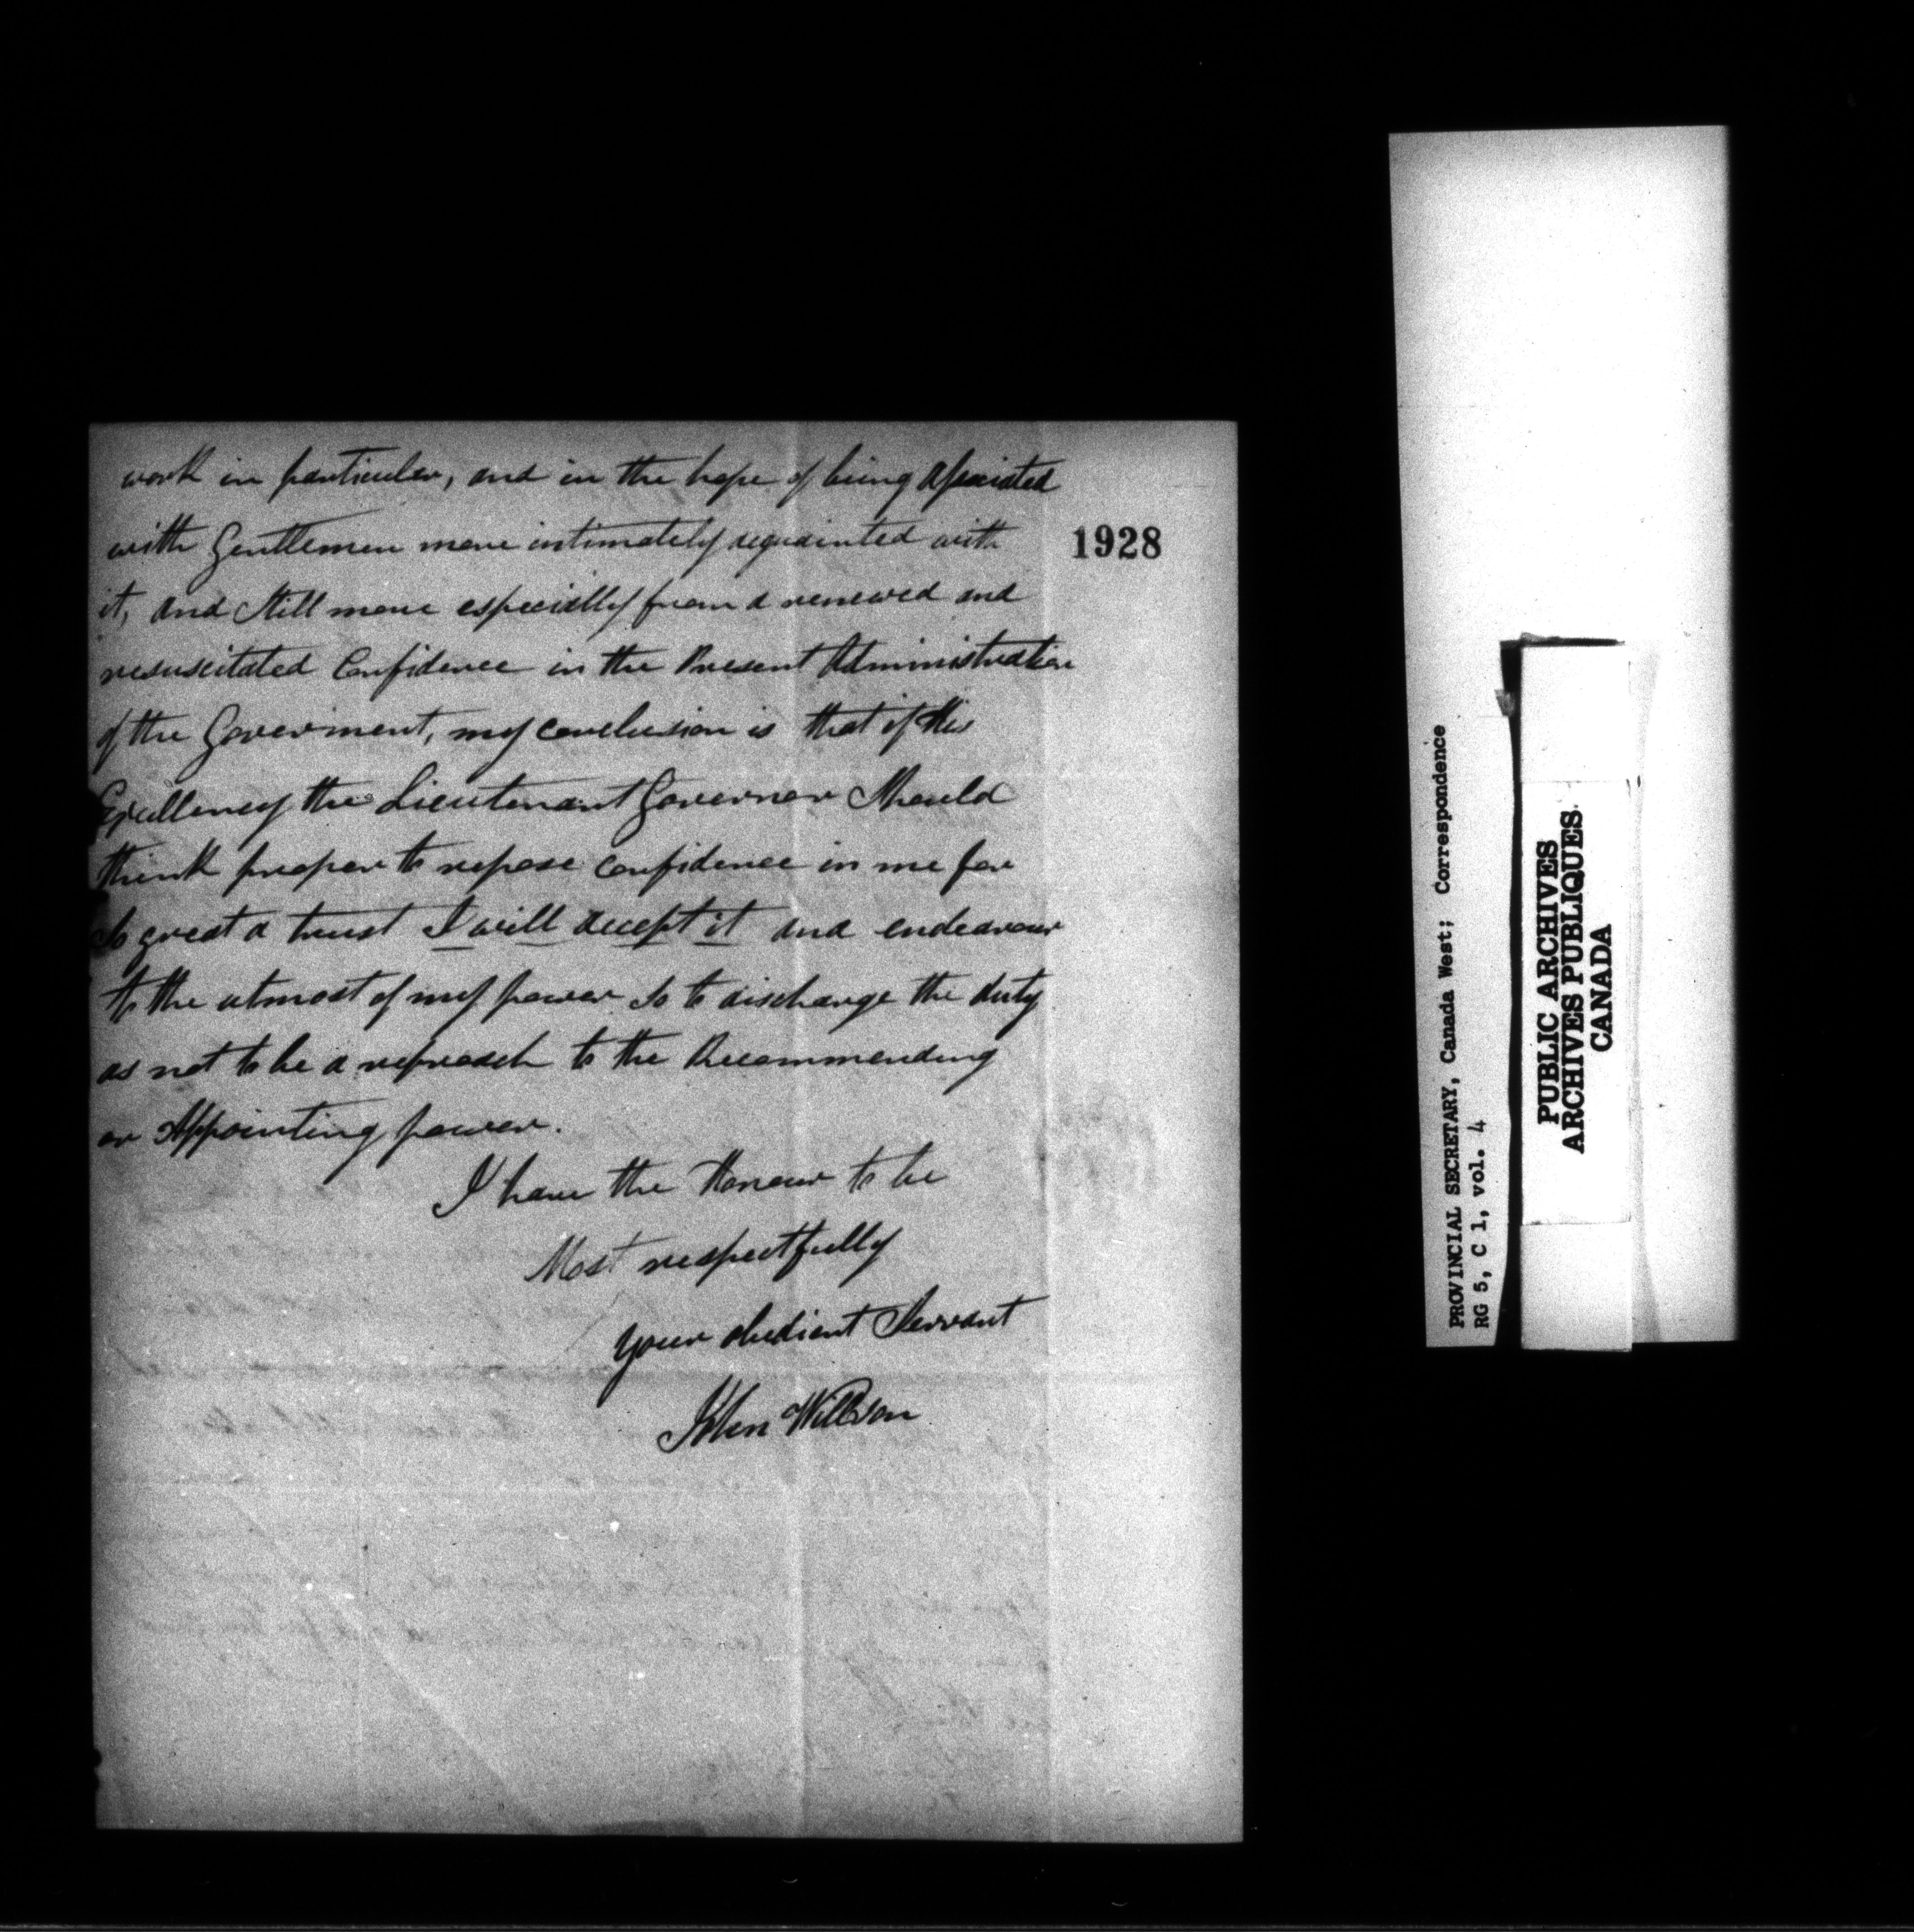 work in particular, and in the hope of being associated
with Gentlemen more intimately acquainted with
it, and Still more especially from a renewed and
resuscitated Confidence in the Present Administration
of the Goverment, my conclusion is that if His
Excellency the Lieutenant Governor Should
think proper to repose confidence in me for
So great a trust I will accept it and endeavour
to the utmost of my power So to discharge the duty
as not to be a reproach to the Recommending
or Appointing power.
I have the Honour to be
Most respectfully
your obedient Servant
John Willson
1928
PROVINCIAL SECRETARY, Canada West; Correspondence
RG 5, C 1, vol. 4
PUBLIC ARCHIVES
ARCHIVES PUBLIQUES
CANADA